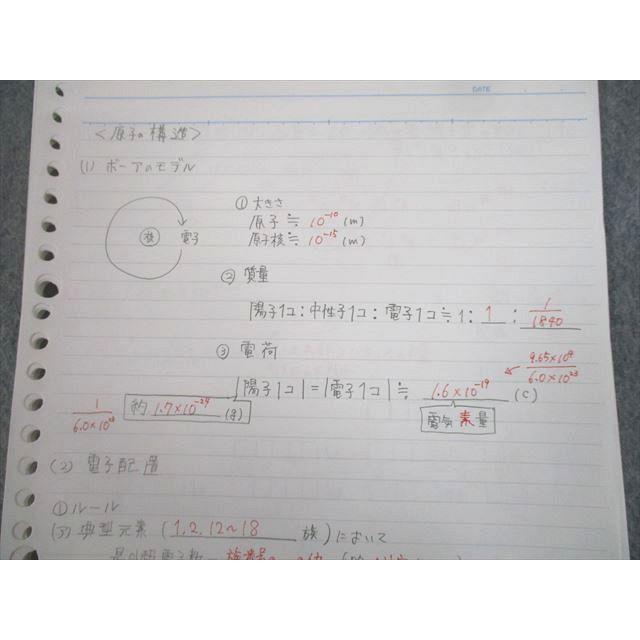 DATE
<原子の構造>
(1) ボーアのモデル
核 電子
① 大きさ
原子≒ 10⁻¹⁰ (m)
原子核≒ 10⁻¹⁵ (m)
② 質量
陽子1コ:中性子1コ:電子1コ≒1: 1 : 1/1840
③ 電荷
|陽子1コ|=|電子1コ|≒ 1.6×10⁻¹⁹ (C) ← 9.65×10⁴/6.0×10²³
1/6.0×10²³ 約 1.7×10⁻²⁴ (g)
電気素量
(2) 電子配置
① ルール
(ア) 典型元素 (1, 2, 12~18 族) において